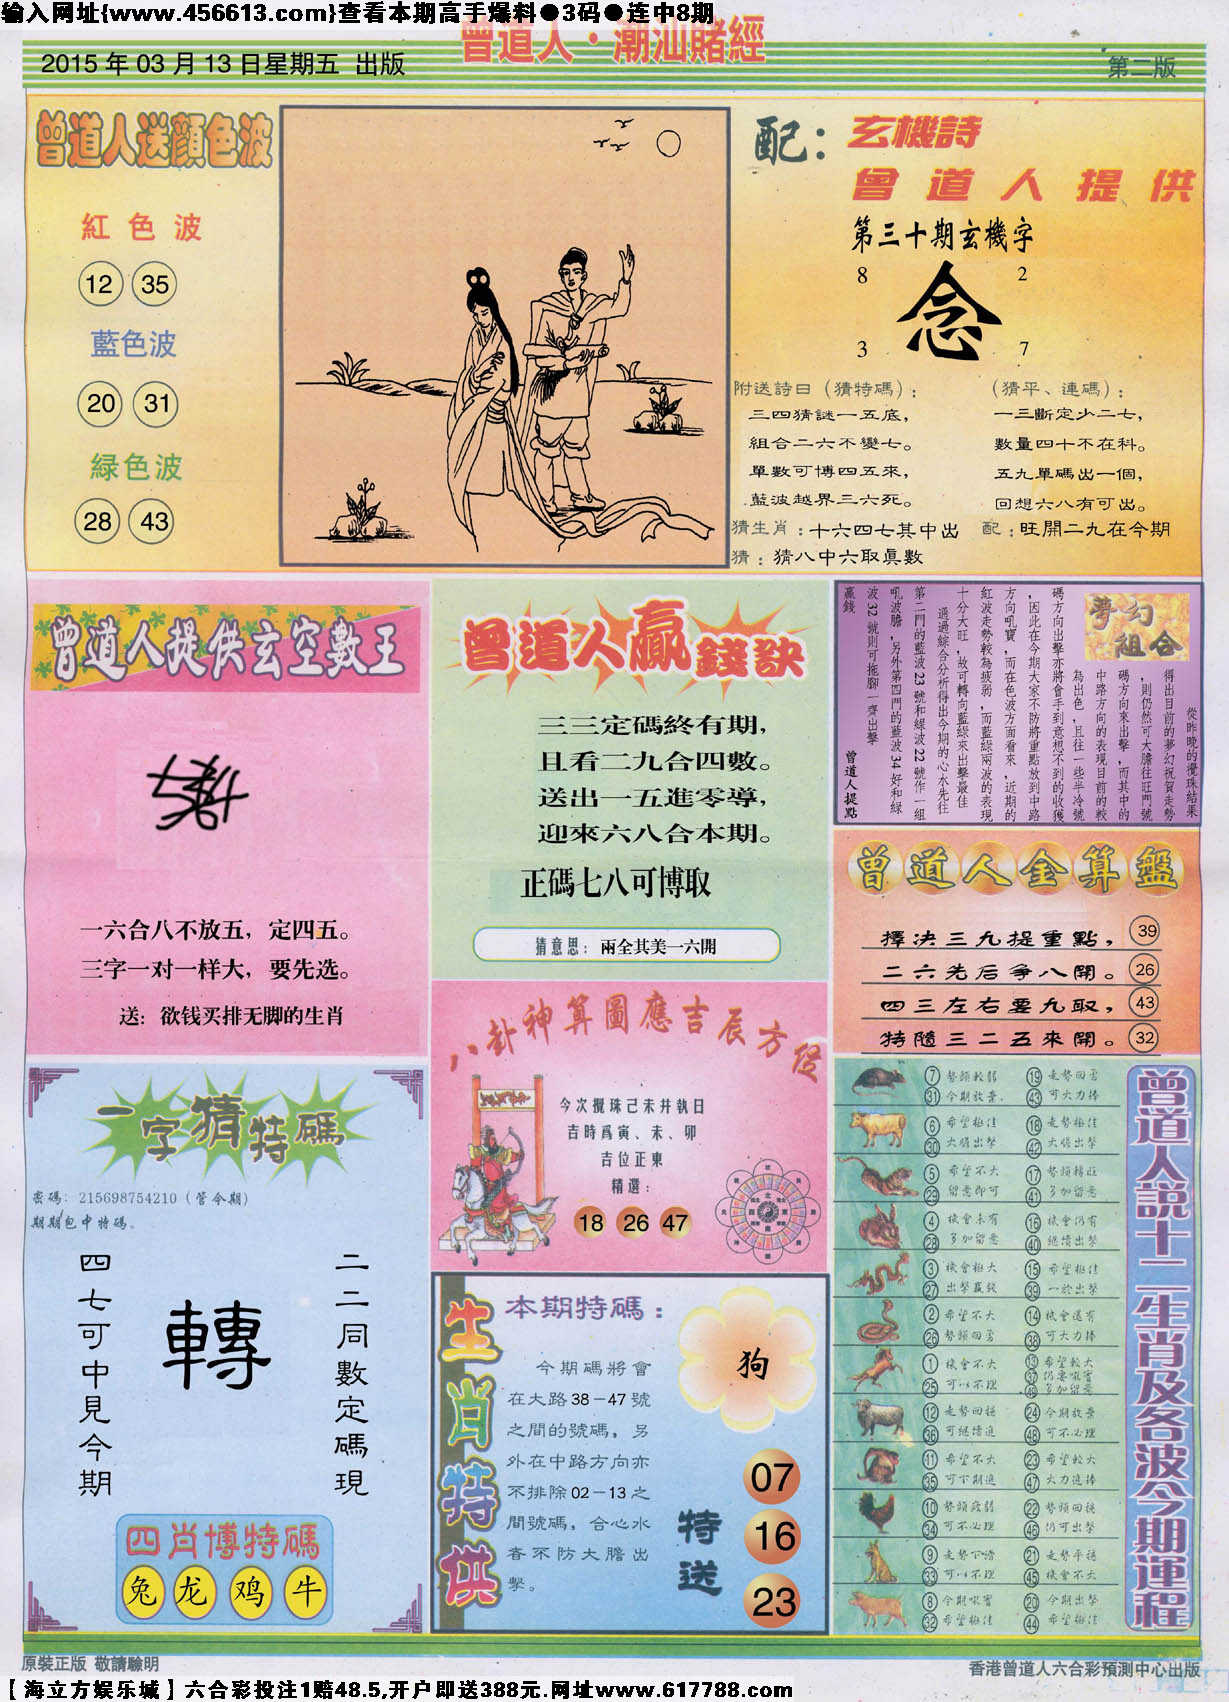 输入网址{www.456613.com}查看本期高手爆料●3码●连中8期
曾道人·潮汕賭經
2015 年 03 月 13 日星期五 出版
第二版
曾道人送顔色波
紅色波
12 35
藍色波
20 31
緑色波
28 43
配：
玄機詩
曾道人提供
第三十期玄機字
8 2
念
3 7
附送詩曰（猜特碼）：
三四猜謎一五底，
組合二六不變七。
單數可博四五來，
藍波越界三六死。
（猜平、連碼）：
一三斷定少二七，
數量四十不在科。
五九單碼出一個，
回想六八有可出。
猜生肖：十六四七其中出
配：旺開二九在今期
猜：猜八中六取眞數
曾道人提供玄空數王
一六合八不放五，定四五。
三字一对一样大，要先选。
送：欲钱买排无脚的生肖
曾道人贏錢訣
三三定碼終有期，
且看二九合四數。
送出一五進零導，
迎來六八合本期。
正碼七八可博取
猜意思：兩全其美一六開
夢幻組合
從昨晚的攪珠結果
得出目前的夢幻祝賀走勢
，則仍然可大膽往旺門號
碼方向來出擊，而其中的
中路方向的表現目前的較
為出色，且往一些半冷號
碼方向出擊亦將會手到意想不到的收獲
，因此在今期大家不防將重點放到中路
方向吼寶，而在色波方面看來，近期的
紅波走勢較為疲弱，而藍綠兩波的表現
十分大旺，故可轉向藍綠來出擊最佳
通過綜合分析得出今期的心水先往
第二門的藍波23號和綠波22號作一組
吼波膽，另外第四門的藍波34好和綠
波32號則可拖腳一齊出擊
贏錢
曾道人提點
曾道人金算盤
擇決三九提重點， 39
二六先后爭八開。 26
四三左右要九取， 43
特隨三二五來開。 32
八卦神算圖應吉辰方位
今次攪珠己未井執日
吉時爲寅、未、卯
吉位正東
精選：
18 26 47
一字猜特碼
密碼：215698754210（管今期）
期期包中特碼。
二二同數定碼現
轉
四七可中見今期
四肖博特碼
兔 龙 鸡 牛
生肖特供
本期特碼：
今期碼將會
在大路38－47號
之間的號碼，另
外在中路方向亦
不排除02－13之
間號碼，合心水
者不防大膽出
擊。
狗
特送
07
16
23
曾道人説十二生肖及各波今期運程
⑦ 勢頭較弱 ⑲ 走勢回勇
㉛ 今期放棄 ㊸ 可大力捧
⑥ 希望極佳 ⑱ 走勢極佳
㉚ 大膽出擊 ㊷ 大膽出擊
⑤ 希望不大 ⑰ 勢頭轉旺
㉙ 留意即可 ㊶ 多加留意
④ 機會未有 ⑯ 機會仍有
㉘ 多加留意 ㊵ 繼續出擊
③ 機會極大 ⑮ 希望極佳
㉗ 出擊贏錢 ㊴ 一於出擊
② 希望不大 ⑭ 機會還有
㉖ 勢頭回勇 ㊳ 可大力捧
① 機會不大 ⑬ 希望較大
㉕ 可以不理 ㊲ 仍要吼實
㊾ 多加留意
⑫ 走勢回穩 ㉔ 今期放棄
㊱ 可繼續追 ㊽ 可不必理
⑪ 希望不大 ㉓ 希望較大
㉟ 可下期追 ㊼ 大力追捧
⑩ 勢頭疲弱 ㉒ 勢頭回穩
㉞ 可不必理 ㊻ 仍可出擊
⑨ 走勢下滑 ㉑ 走勢平穩
㉝ 可以不理 ㊺ 機會不大
⑧ 今期吼實 ⑳ 今期出擊
㉜ 希望極佳 ㊹ 希望極佳
原裝正版 敬請驗明
香港曾道人六合彩預測中心出版
【海立方娱乐城】六合彩投注1赔48.5,开户即送388元.网址www.617788.com